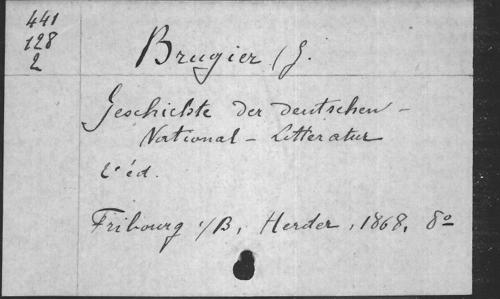 441
128
2
Brugier (G.
Geschichte der deutschen -
National - Litteratur
2e éd.
Fribourg i/B, Herder, 1868, 8o